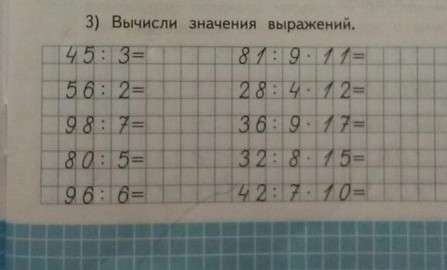 3) Вычисли значения выражений.
45 : 3 = 81 : 9 · 11 =
56 : 2 = 28 : 4 · 12 =
98 : 7 = 36 : 9 · 17 =
80 : 5 = 32 : 8 · 15 =
96 : 6 = 42 : 7 · 10 =